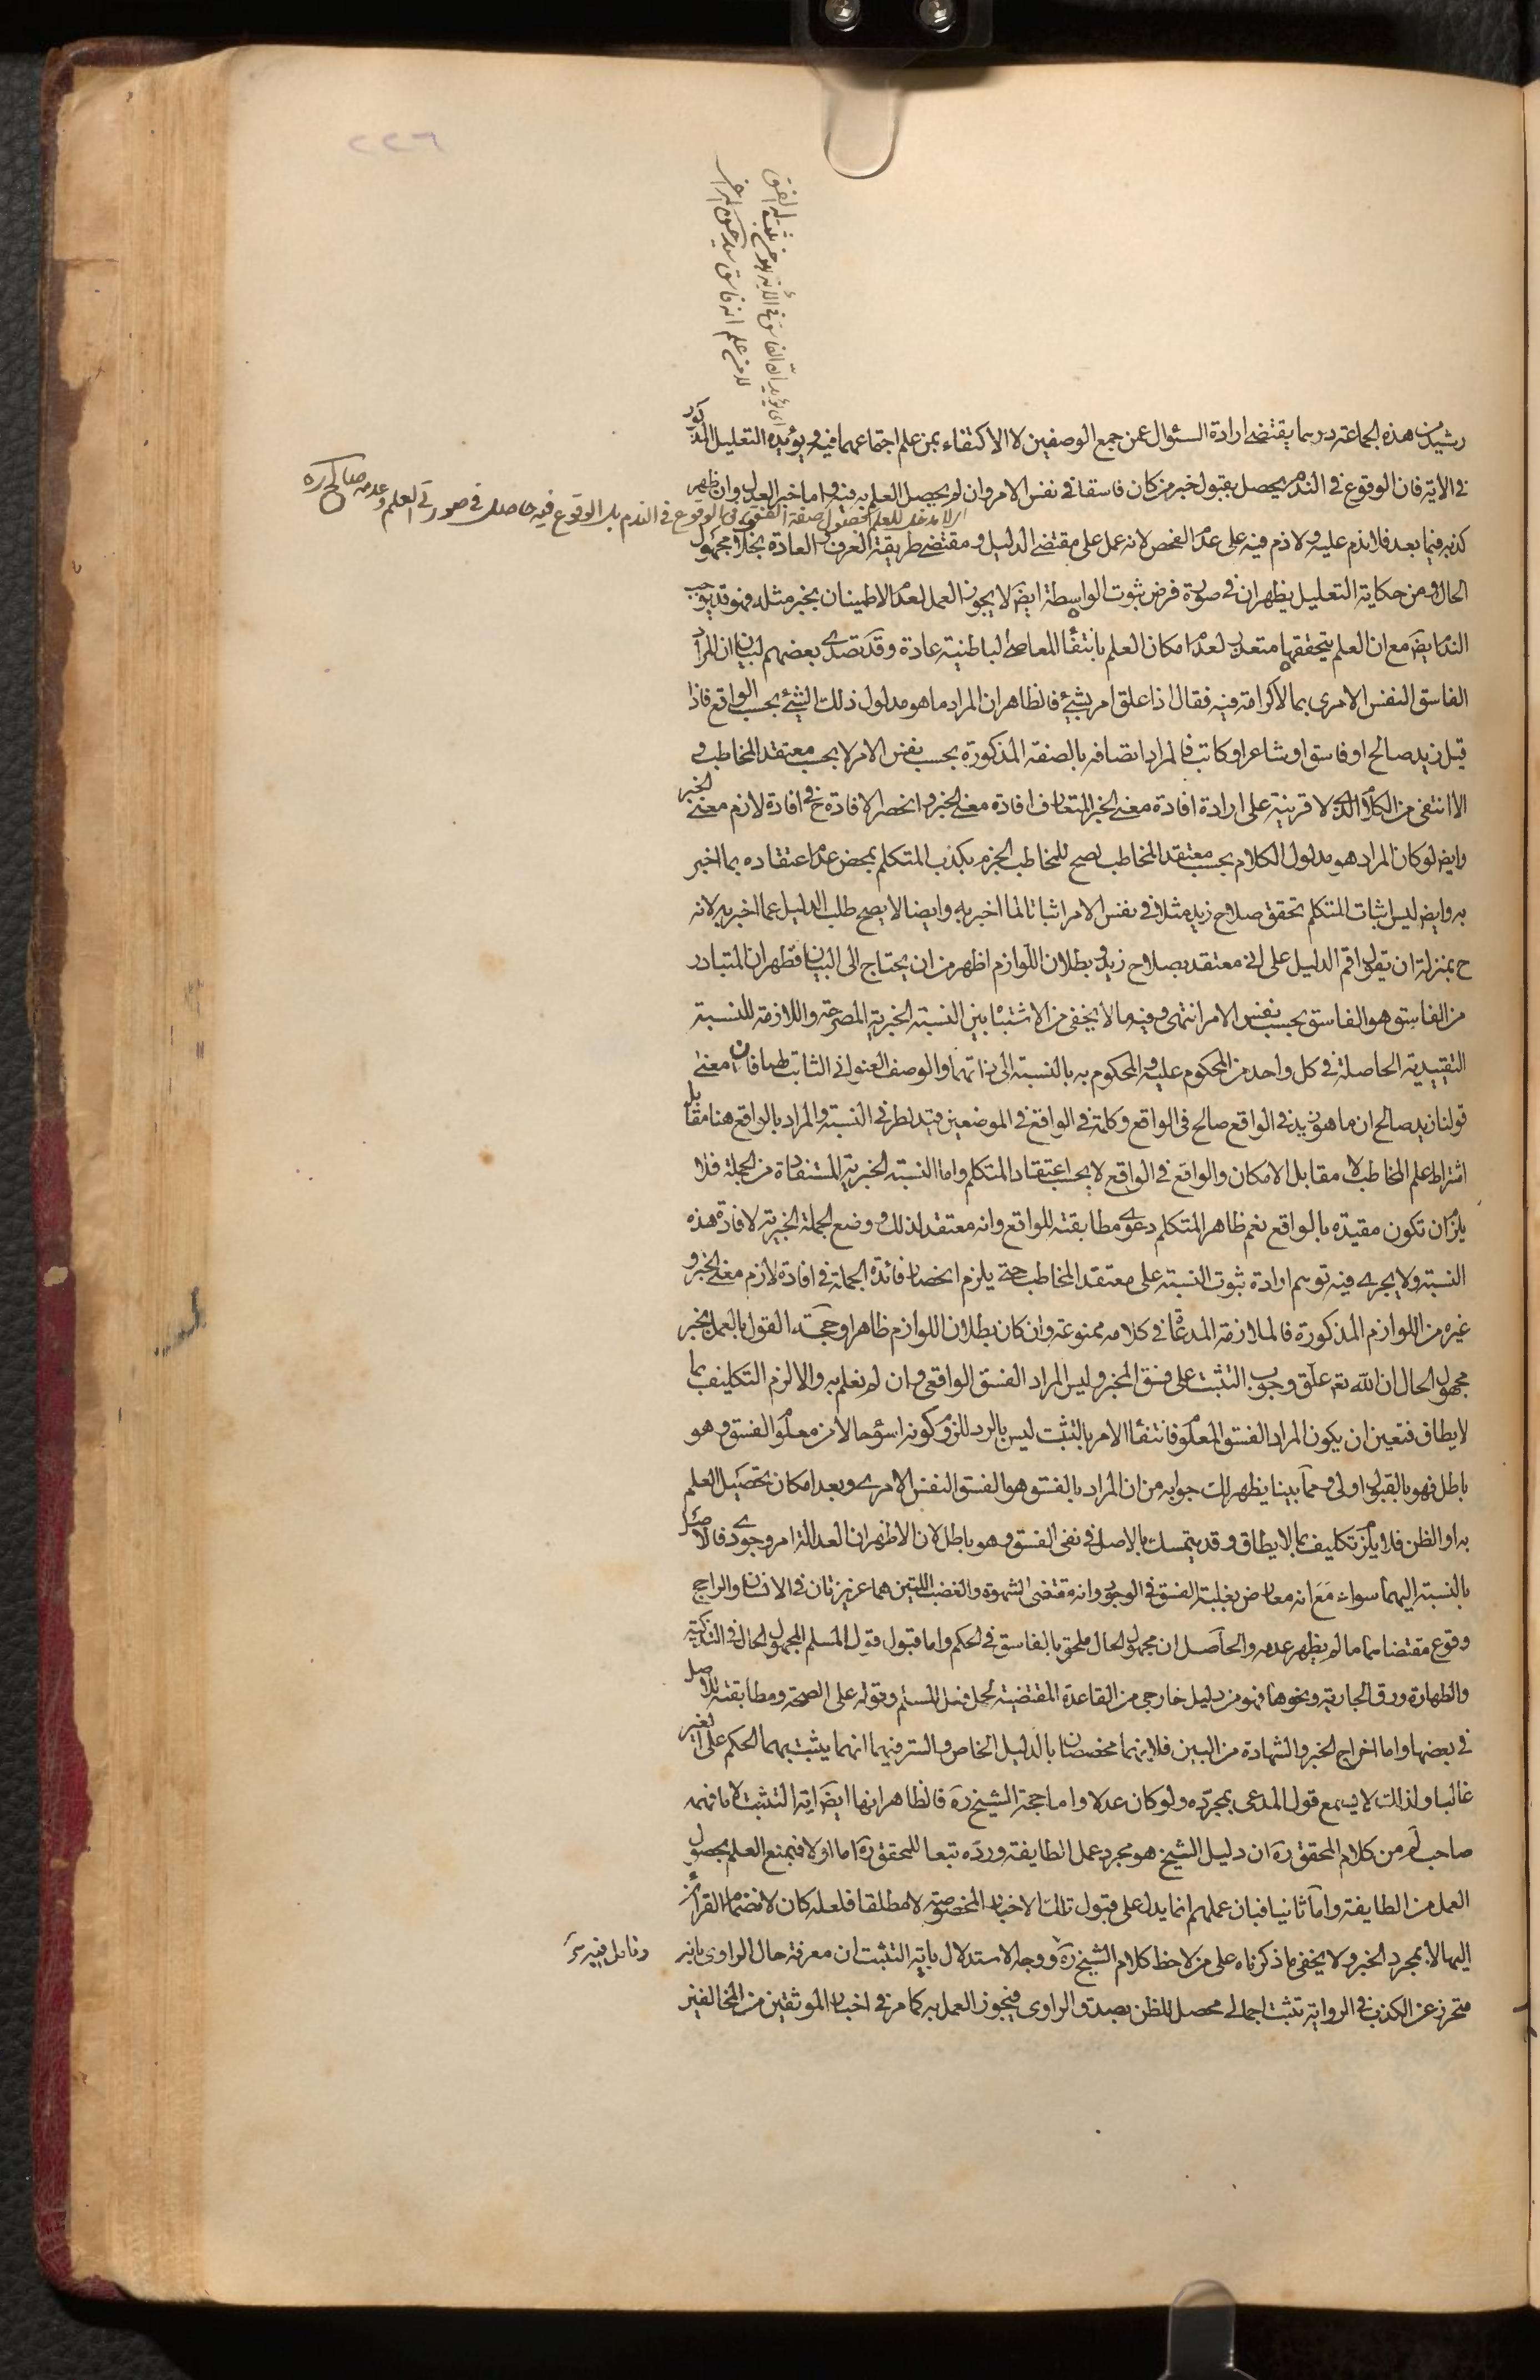 ٢٢٦
اى يؤيد ان الفاسق فى الآية
علم انه فاسق
رشيد من هذه الجماعة درهما يقتضى ارادة السئوال عمن جمع الوصفين لا الاكتفاء بمن علم اجتماعهما فيه ويؤيده التعليل المذكور
فى الاية فان الوقوع فى الندم يحصل بقبول خبر من كان فاسقا فى نفس الامر وان لم يحصل العلم به فيه واما خبر العدل وان ظهر
اى لا مدخل للعلم بحصول صفة الفسق فى الوقوع فى الندم بل الوقوع فيه حاصل فى صورتى العلم وعدمه صالح ره
كذبه فيما بعد فلا ندم عليه ولا ذم فيه على عدم الفحص لانه عمل على مقتضى الدليل ومقتضى طريقة العرف والعادة بخلاف مجهول
الحال ومن حكاية التعليل يظهر ان فى صورة فرض ثبوت الواسطة ايضا لا يجوز العمل لعدم الاطمينان بخبر مثله فهو قد يوجب
الندم ايضا مع ان العلم بتحققها متعذر لعدم امكان العلم بانتفاء المعاصى الباطنية عادة وقد تصدى بعضهم لبيان ان المراد
الفاسق النفس الامرى بما لا كرامة فيه فقال اذا علق امر بشيئ فالظاهر ان المراد ما هو مدلول ذلك الشيئ بحسب الواقع فاذا
قيل زيد صالح او فاسق او شاعر او كاتب فالمراد اتصافه بالصفة المذكورة بحسب نفس الامر لا بحسب معتقد المخاطب و
الا انتفى من الكلام الذى لا قرينة على ارادة افادة معنى الخبر المتعارف افادة معنى الخبر وانحصر الافادة ح فى افادة لازم معنى الخبر
وايض لو كان المراد هو مدلول الكلام بحسب معتقد المخاطب لصح للمخاطب الجزم بكذب المتكلم بمحض عدم اعتقاده بما اخبر
به وايض ليس اثبات المتكلم تحقق صلاح زيد مثلا فى نفس الامر اثباتا لما اخبر به وايضا لا يصح طلب الدليل عما اخبر به لانه
ح بمنزلة ان تقول اقم الدليل على انى معتقد بصلاح زيد وبطلان اللوازم اظهر من ان يحتاج الى البيان فظهر ان المتبادر
من الفاسق هو الفاسق بحسب نفس الامر انتهى وفيه ما لا يخفى من الاشتباه بين النسبة الخبرية المصرحة واللازمة للنسبة
التقييدية الحاصلة فى كل واحد من المحكوم عليه والمحكوم به بالنسبة الى ذاتهما والوصف العنوانى الثابت لهما فان معنى
قولنا زيد صالح ان ما هو زيد فى الواقع صالح فى الواقع وكلمة فى الواقع فى الموضعين قيد لطرفى النسبة والمراد بالواقع هنا مقابل
اشتراط علم المخاطب لا مقابل الامكان والواقع فى الواقع لا بحسب اعتقاد المتكلم واما النسبة الخبرية المستفادة من الجملة فلا
يلزم ان تكون مقيدة بالواقع نعم ظاهر المتكلم دعوى مطابقته للواقع وانه معتقد لذلك ووضع الجملة الخبرية لافادة هذه
النسبة ولا يجرى فيه توهم ارادة ثبوت النسبة على معتقد المخاطب حتى يلزم انحصار فائدة الجملة فى افادة لازم معنى الخبر و
غيره من اللوازم المذكورة فالملازمة المدعاة فى كلامه ممنوعة وان كان بطلان اللوازم ظاهرا وحجة القول بالعمل بخبر
مجهول الحال ان الله تعم علق وجوب التثبت على فسق المخبر وليس المراد الفسق الواقعى وان لم نعلم به والا لزم التكليف بما
لا يطاق فتعين ان يكون المراد الفسق المعلوم فانتفاء الامر بالتثبت ليس بالرد للزوم كونه اسوء حالا من معلوم الفسق وهو
باطل فهو بالقبول اولى ومما بينا يظهر لك جوابه من ان المراد بالفسق هو الفسق النفس الامرى وبعد امكان تحصيل العلم
به او الظن فلا يلزم تكليف بما لا يطاق وقد يتمسك بالاصل فى نفى الفسق وهو باطل لان الاظهر ان العدالة امر وجودى فالاصل
بالنسبة اليهما سواء مع انه معارض بغلبة الفسق فى الوجود وانه مقتضى الشهوة والغضب اللتين هما غريزتان فى الانسان والراجح
وقوع مقتضاهما ما لم يظهر عدمه والحاصل ان مجهول الحال ملحق بالفاسق فى الحكم واما قبول قول المسلم المجهول الحال فى التذكية
والطهارة ورق الجارية ونحوها فهو من دليل خارجى من القاعدة المقتضية لحمل فعل المسلم وقوله على الصحة ومطابقته للاصل
فى بعضها واما اخراج الخبر والشهادة من البين فلانهما مخصصان بالدليل الخاص والسر فيهما انهما يثبت بهما الحكم على الغير
غالبا ولذلك لا يسمع قول المدعى بمجرده ولو كان عدلا واما حجة الشيخ ره فالظاهر انها ايضا اية التثبت لا ما فهمه
صاحب لم من كلام المحقق ره ان دليل الشيخ هو مجرد عمل الطايفة ورده تبعا للمحقق ره اما اولا فبمنع العلم بحصول
العمل من الطايفة واما ثانيا فبان عملهم انما يدل على قبول تلك الاخبار المخصوصة لا مطلقا فلعله كان لانضمام القرائن
اليها لا بمجرد الخبر ولا يخفى ما ذكرناه على من لاحظ كلام الشيخ ره ووجه الاستدلال باية التثبت ان معرفة حال الراوى بانه
متحرز عن الكذب فى الرواية تثبت اجمالى محصل للظن بصدق الراوى فيجوز العمل به كما مر فى اخبار الموثقين من المخالفين